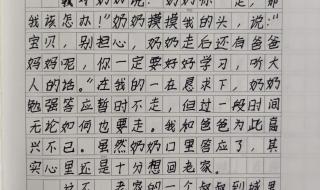 我该怎办!”奶奶摸摸我的头,说:“
宝贝,别担心,奶奶走后还有爸爸
妈妈呢,你一定要好好学习,听大
人的话。”在我的一在恳求下,奶奶
勉强答应暂时不走,但过一段时间
无论如何也要走。我和爸爸为此高
兴不已。虽然奶奶口里答应了,其
实心里还是十分想回老家。